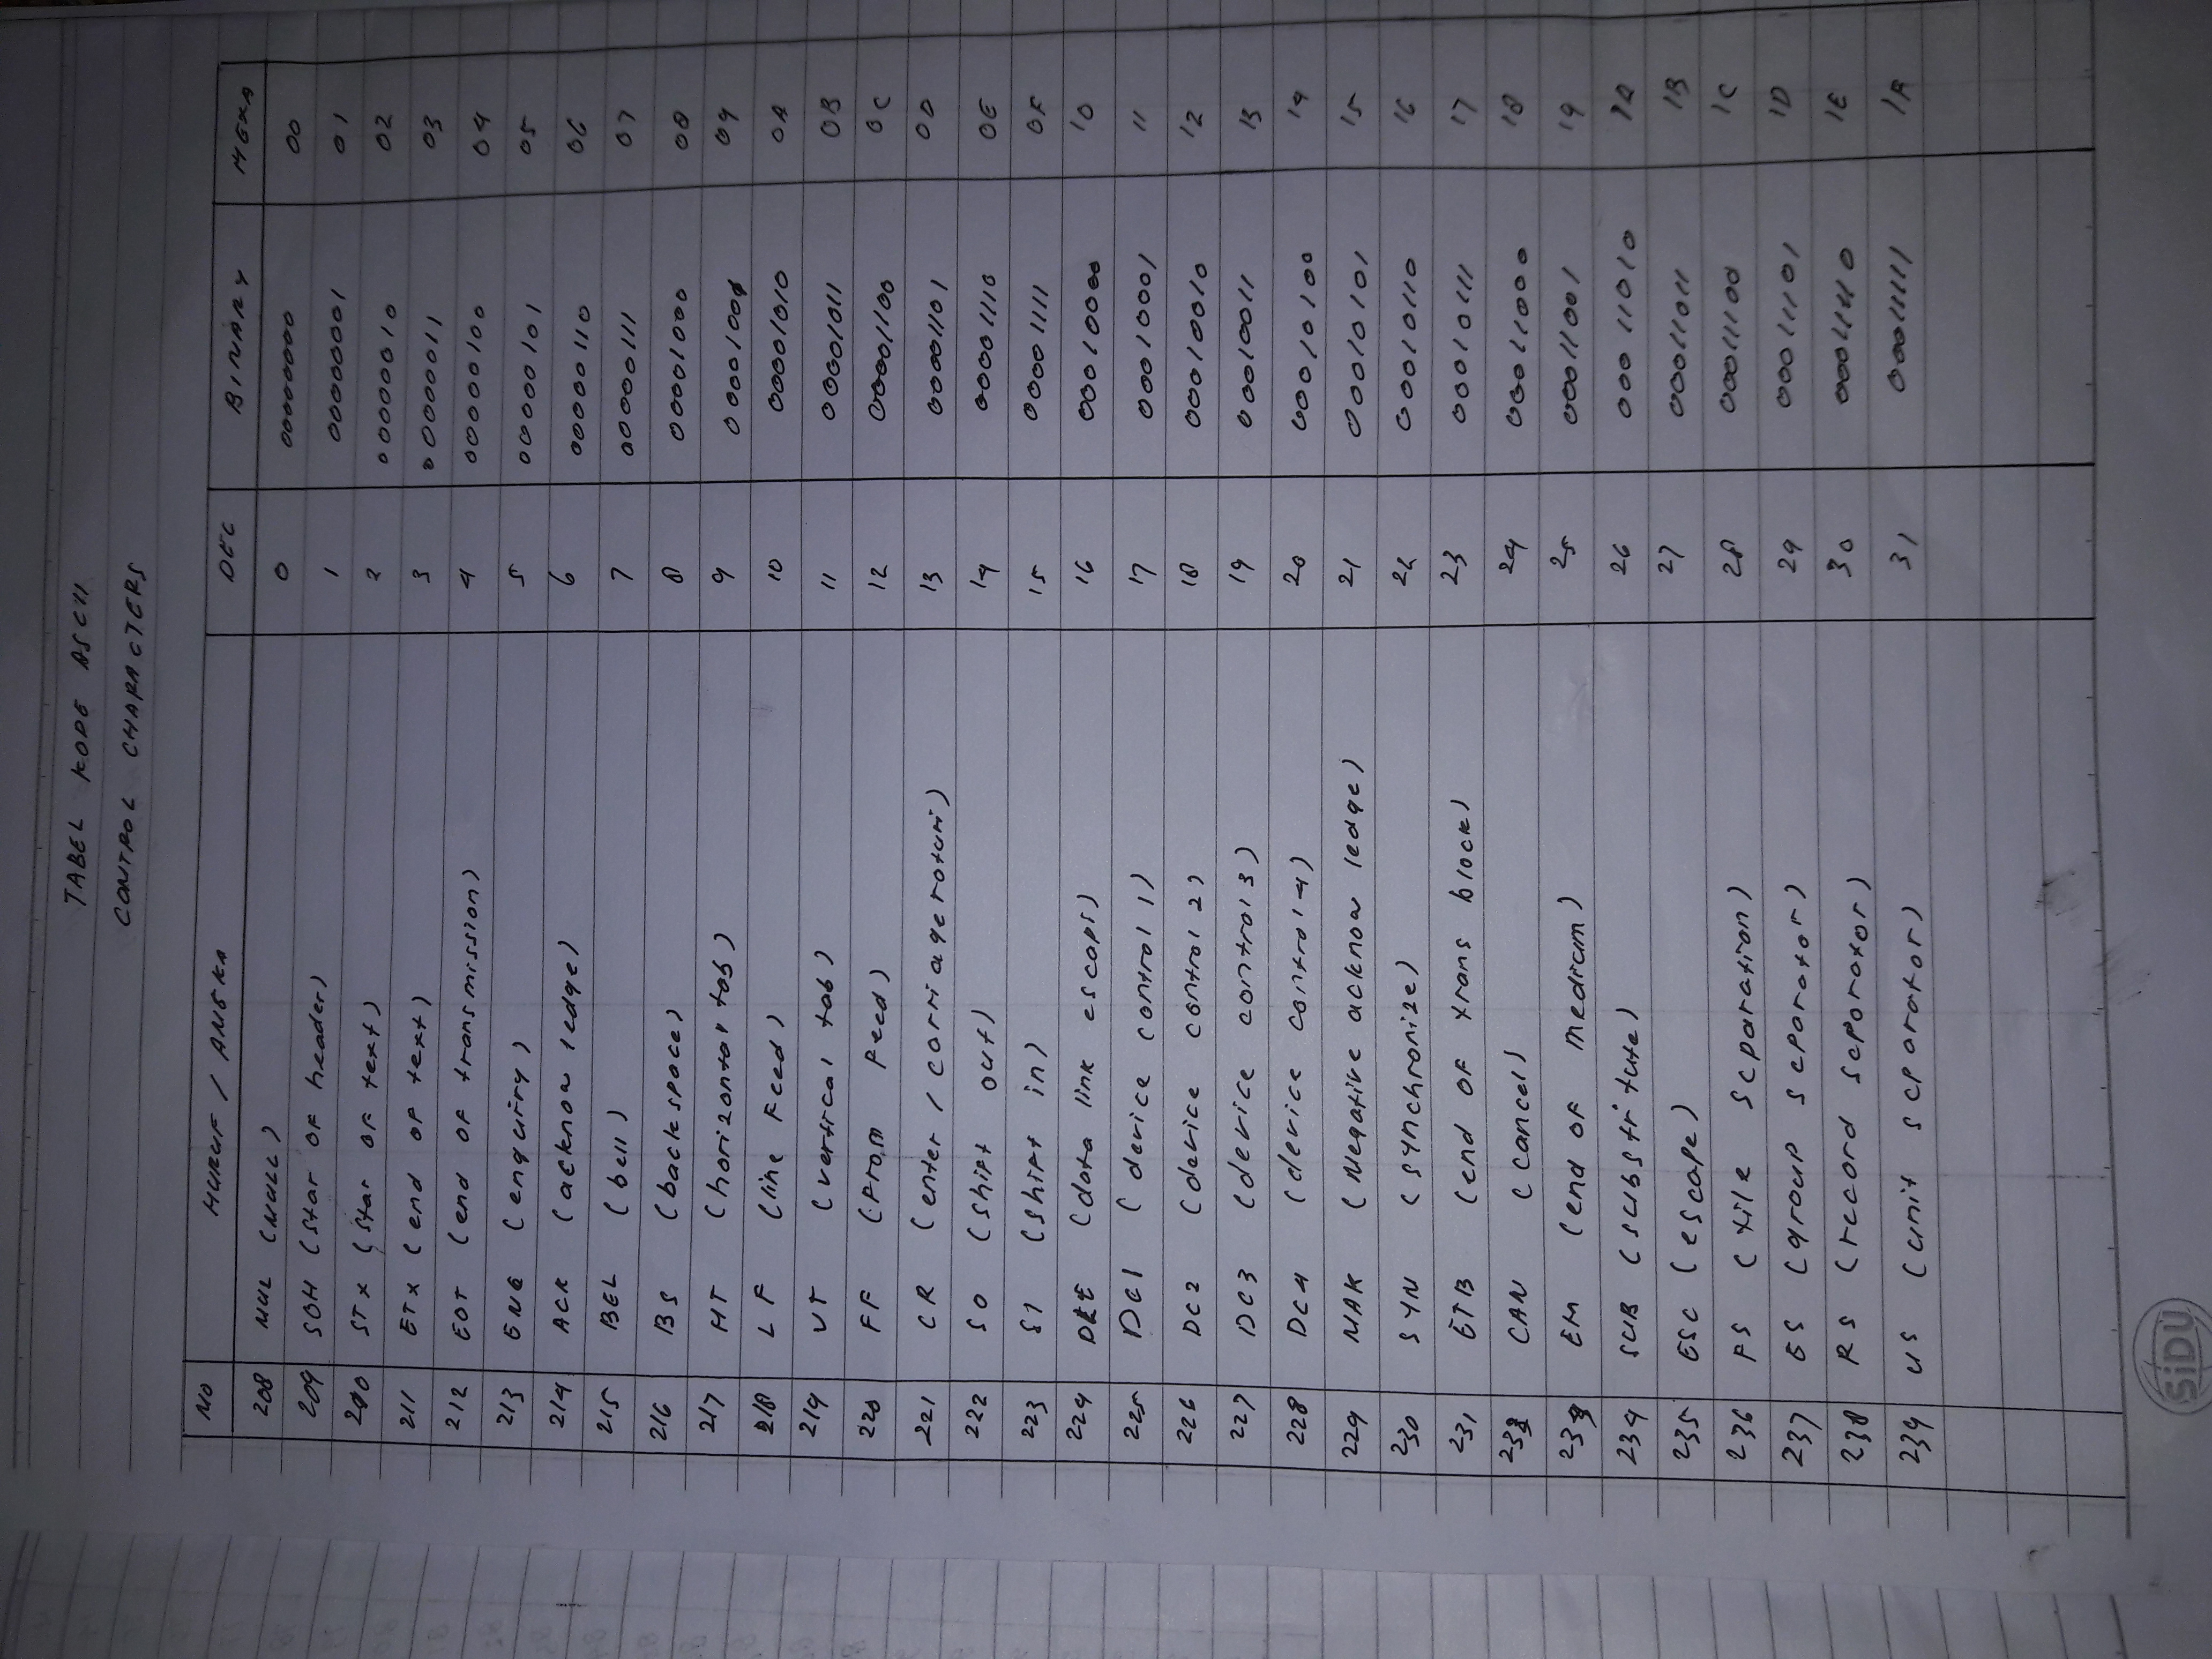 TABEL KODE ASCII
CONTROL CHARACTERS
NO HURUF / ANGKA DEC BINARY HEXA
208 NUL (NULL) 0 00000000 00
209 SOH (star of header) 1 00000001 01
210 STX (star of text) 2 00000010 02
211 ETX (end of text) 3 00000011 03
212 EOT (end of transmission) 4 00000100 04
213 ENQ (enquirry) 5 00000101 05
214 ACK (acknow ledge) 6 00000110 06
215 BEL (bell) 7 00000111 07
216 BS (backspace) 8 00001000 08
217 HT (horizontal tab) 9 00001001 09
218 LF (line Feed) 10 00001010 0A
219 VT (vertical tab) 11 00001011 0B
220 FF (From Feed) 12 00001100 0C
221 CR (enter / carriage roturi) 13 00001101 0D
222 SO (shift out) 14 00001110 0E
223 SI (shift in) 15 00001111 0F
224 DLE (data link escapi) 16 00010000 10
225 DC1 (device control 1) 17 00010001 11
226 DC2 (device control 2) 18 00010010 12
227 DC3 (device control 3) 19 00010011 13
228 DC4 (device control 4) 20 00010100 14
229 NAK (Negative acknow ledge) 21 00010101 15
230 SYN (synchronize) 22 00010110 16
231 ETB (end of trans block) 23 00010111 17
232 CAN (cancel) 24 00011000 18
233 EM (end of medium) 25 00011001 19
234 SUB (substitute) 26 00011010 1A
235 ESC (escape) 27 00011011 1B
236 FS (file separation) 28 00011100 1C
237 GS (group separator) 29 00011101 1D
238 RS (record separator) 30 00011110 1E
239 US (unit separator) 31 00011111 1F
SiDU